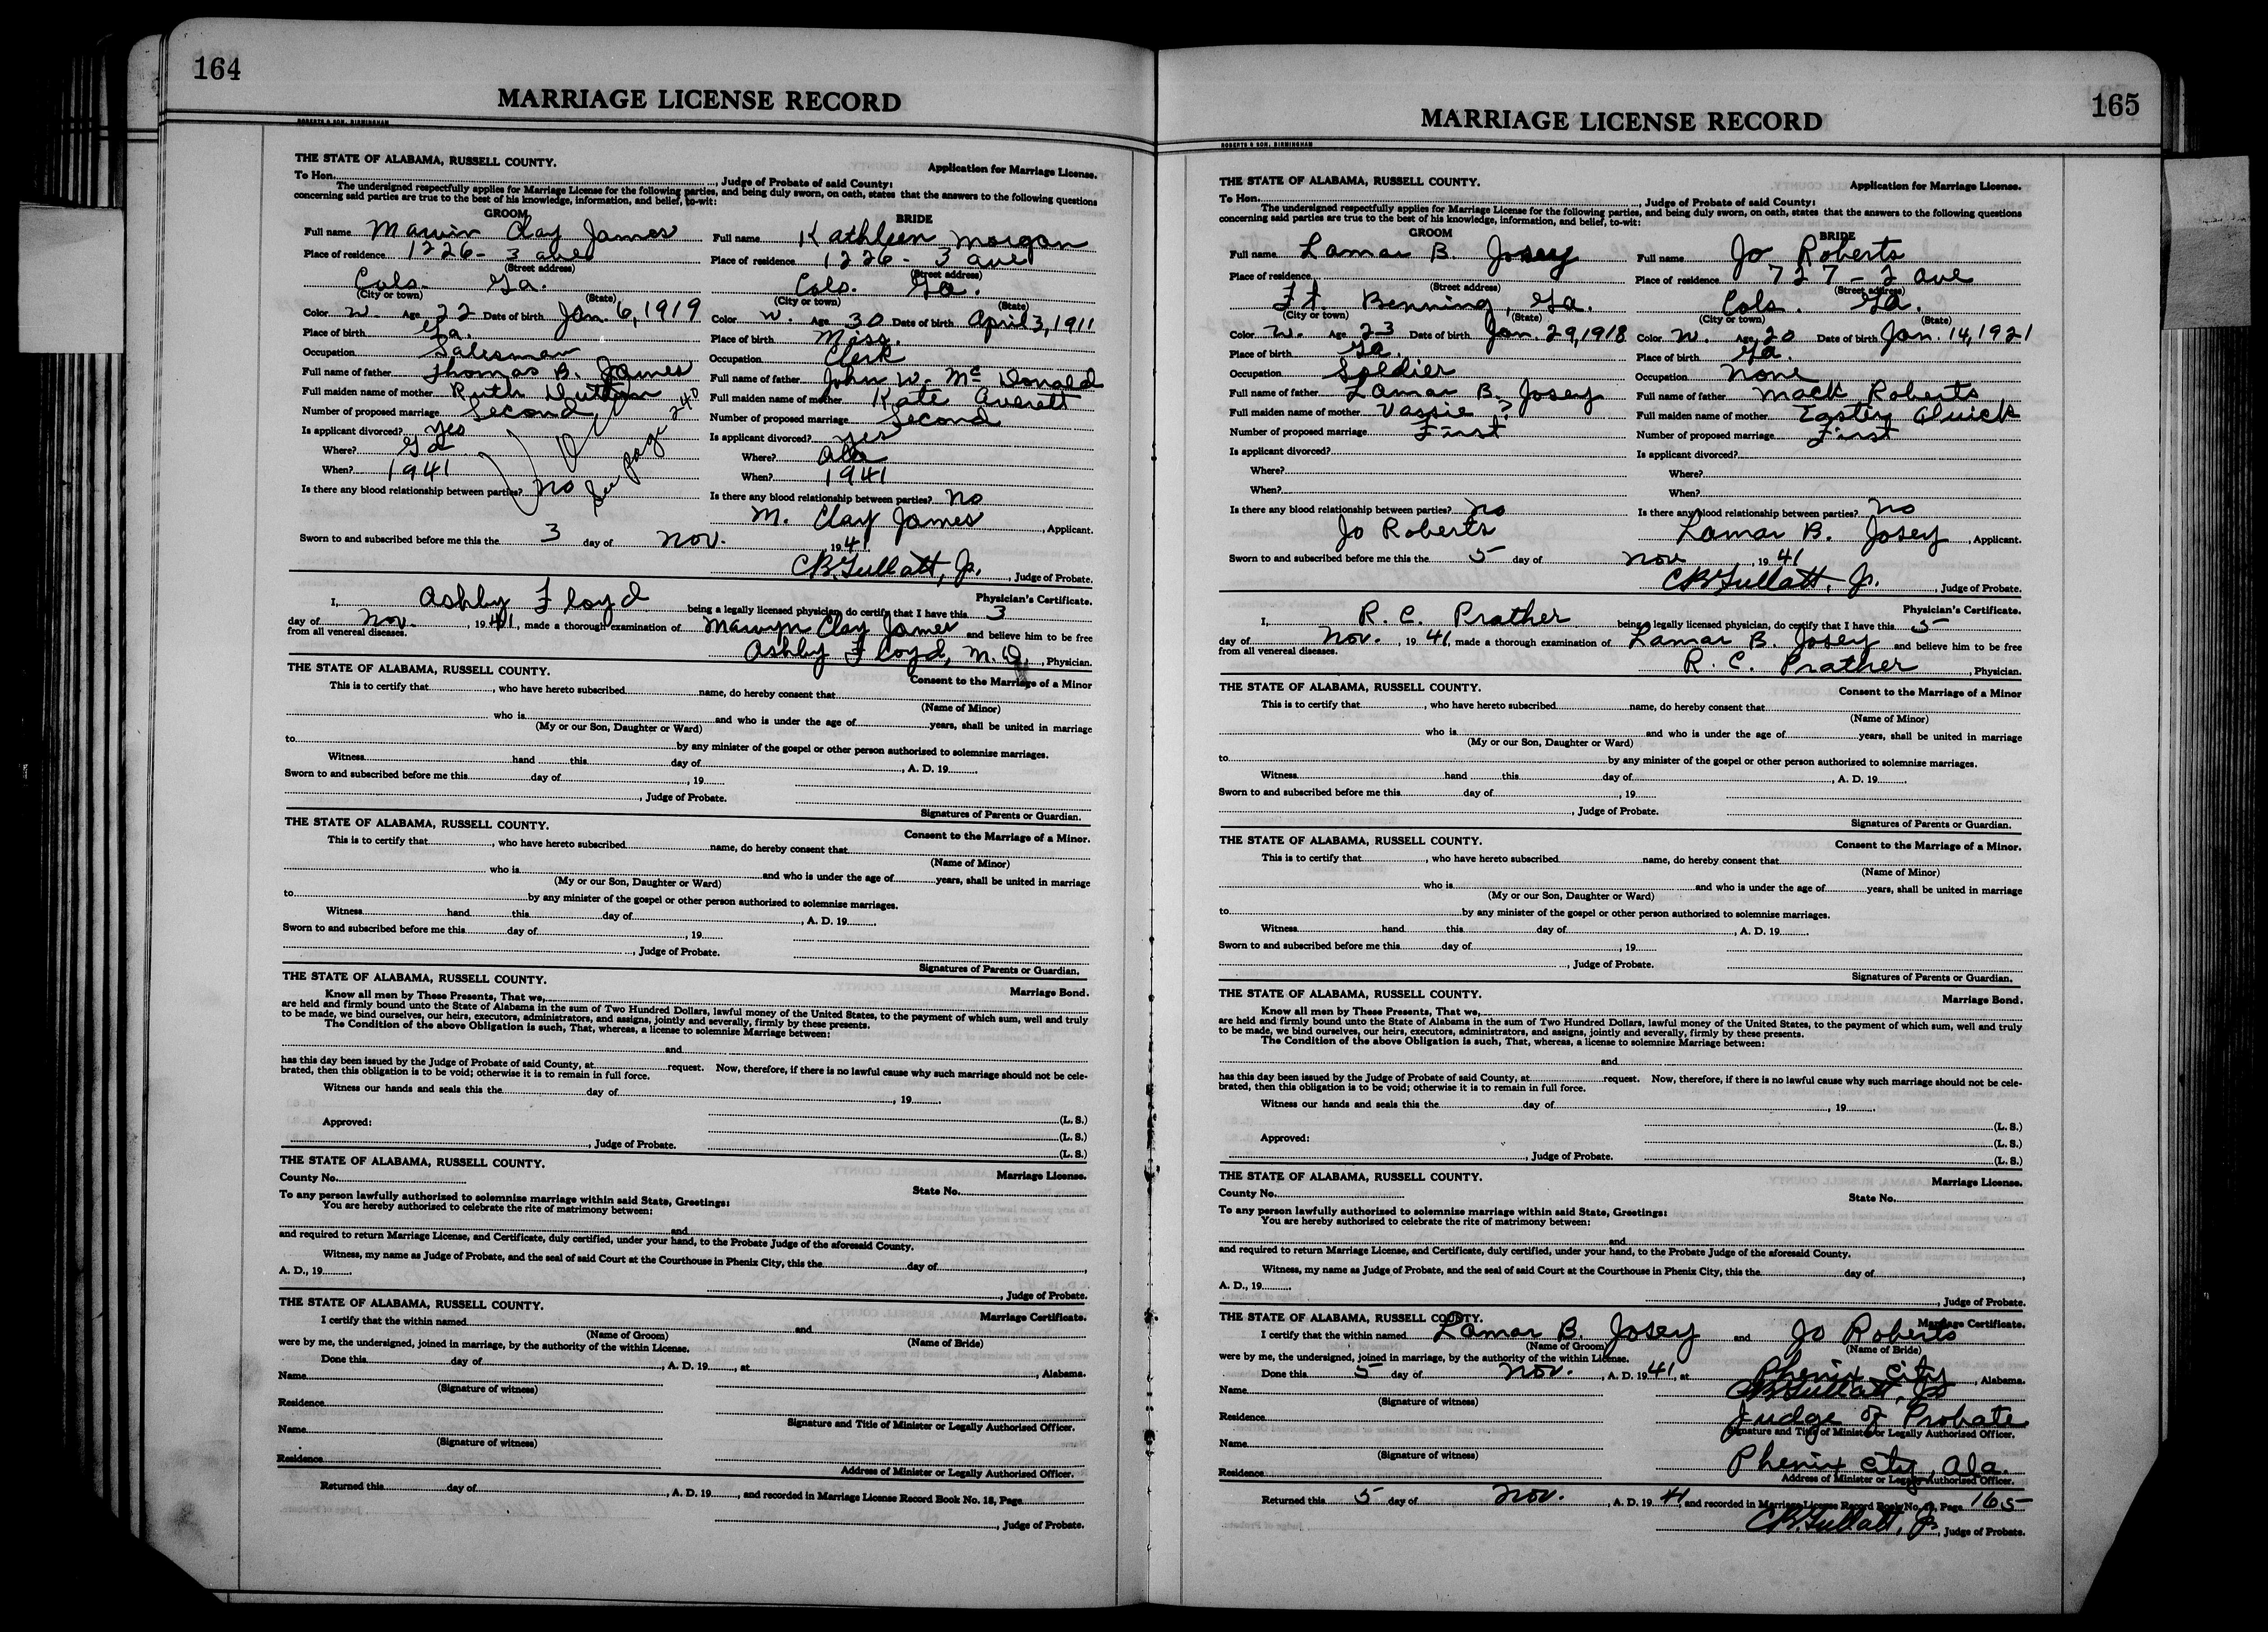 164
MARRIAGE LICENSE RECORD
ROBERTS & SON, BIRMINGHAM
THE STATE OF ALABAMA, RUSSELL COUNTY.
Application for Marriage License.
To Hon. , Judge of Probate of said County:
The undersigned respectfully applies for Marriage License for the following parties, and being duly sworn, on oath, states that the answers to the following questions
concerning said parties are true to the best of his knowledge, information, and belief, to-wit:
GROOM
Full name Marvin Clay James
Place of residence 1226 - 3 ave
(Street address)
Cols. Ga.
(City or town) (State)
Color W. Age 22 Date of birth Jan. 6, 1919
Place of birth Ga.
Occupation Salesman
Full name of father Thomas B. James
Full maiden name of mother Ruth Dutton
Number of proposed marriage Second
Is applicant divorced? yes
Where? Ga
When? 1941
Is there any blood relationship between parties? no
See page 240
BRIDE
Full name Kathleen Morgan
Place of residence 1226 - 3 ave
(Street address)
Cols. Ga.
(City or town) (State)
Color W. Age 30 Date of birth April 3, 1911
Place of birth Miss.
Occupation Clerk
Full name of father John W. McDonald
Full maiden name of mother Kate Averett
Number of proposed marriage Second
Is applicant divorced? yes
Where? Ala
When? 1941
Is there any blood relationship between parties? no
M. Clay James , Applicant.
Sworn to and subscribed before me this the 3 day of Nov. 1941
C.B. Gullatt, Jr. , Judge of Probate.
Physician's Certificate.
I, Ashby Floyd being a legally licensed physician, do certify that I have this 3
day of Nov. , 1941, made a thorough examination of Marvyn Clay James and believe him to be free
from all venereal diseases.
Ashby Floyd, M.D. , Physician.
THE STATE OF ALABAMA, RUSSELL COUNTY.
Consent to the Marriage of a Minor
This is to certify that , who have hereto subscribed name, do hereby consent that
(Name of Minor)
who is and who is under the age of years, shall be united in marriage
(My or our Son, Daughter or Ward)
to by any minister of the gospel or other person authorized to solemnize marriages.
Witness hand this day of , A. D. 19
Sworn to and subscribed before me this day of , 19
, Judge of Probate.
Signatures of Parents or Guardian.
THE STATE OF ALABAMA, RUSSELL COUNTY.
Consent to the Marriage of a Minor.
This is to certify that , who have hereto subscribed name, do hereby consent that
(Name of Minor)
who is and who is under the age of years, shall be united in marriage
(My or our Son, Daughter or Ward)
to by any minister of the gospel or other person authorized to solemnize marriages.
Witness hand this day of , A. D. 19
Sworn to and subscribed before me this day of , 19
, Judge of Probate.
Signatures of Parents or Guardian.
THE STATE OF ALABAMA, RUSSELL COUNTY.
Marriage Bond.
Know all men by These Presents, That we,
are held and firmly bound unto the State of Alabama in the sum of Two Hundred Dollars, lawful money of the United States, to the payment of which sum, well and truly
to be made, we bind ourselves, our heirs, executors, administrators, and assigns, jointly and severally, firmly by these presents.
The Condition of the above Obligation is such, That, whereas, a license to solemnize Marriage between:
and
has this day been issued by the Judge of Probate of said County, at request. Now, therefore, if there is no lawful cause why such marriage should not be cele-
brated, then this obligation is to be void; otherwise it is to remain in full force.
Witness our hands and seals this the day of , 19
(L. S.)
Approved: (L. S.)
, Judge of Probate. (L. S.)
THE STATE OF ALABAMA, RUSSELL COUNTY.
Marriage License.
County No. State No.
To any person lawfully authorized to solemnize marriage within said State, Greetings:
You are hereby authorized to celebrate the rite of matrimony between:
and
and required to return Marriage License, and Certificate, duly certified, under your hand, to the Probate Judge of the aforesaid County.
Witness, my name as Judge of Probate, and the seal of said Court at the Courthouse in Phenix City, this the day of ,
A. D., 19
, Judge of Probate.
THE STATE OF ALABAMA, RUSSELL COUNTY.
Marriage Certificate.
I certify that the within named and
(Name of Groom) (Name of Bride)
were by me, the undersigned, joined in marriage, by the authority of the within License.
Done this day of , A. D. 19 , at , Alabama.
Name
(Signature of witness)
Residence
Signature and Title of Minister or Legally Authorized Officer.
Name
(Signature of witness)
Residence
Address of Minister or Legally Authorized Officer.
Returned this day of , A. D. 19 , and recorded in Marriage License Record Book No. 18, Page
, Judge of Probate.
165
MARRIAGE LICENSE RECORD
ROBERTS & SON, BIRMINGHAM
THE STATE OF ALABAMA, RUSSELL COUNTY.
Application for Marriage License.
To Hon. , Judge of Probate of said County:
The undersigned respectfully applies for Marriage License for the following parties, and being duly sworn, on oath, states that the answers to the following questions
concerning said parties are true to the best of his knowledge, information, and belief, to-wit:
GROOM
Full name Lamar B. Josey
Place of residence
(Street address)
Ft Benning, Ga.
(City or town) (State)
Color W. Age 23 Date of birth Jan. 29, 1918
Place of birth Ga.
Occupation Soldier
Full name of father Lamar B. Josey
Full maiden name of mother Vassie ?
Number of proposed marriage First
Is applicant divorced?
Where?
When?
Is there any blood relationship between parties? no
Jo Roberts
BRIDE
Full name Jo Roberts
Place of residence 727 - 2 ave
(Street address)
Cols. Ga.
(City or town) (State)
Color W. Age 20 Date of birth Jan. 14, 1921
Place of birth Ga.
Occupation none
Full name of father Mack Roberts
Full maiden name of mother Quick
Number of proposed marriage First
Is applicant divorced?
Where?
When?
Is there any blood relationship between parties? no
Lamar B. Josey , Applicant.
Sworn to and subscribed before me this the 5 day of Nov , 1941
C.B. Gullatt, Jr. , Judge of Probate.
Physician's Certificate.
I, R. C. Prather being a legally licensed physician, do certify that I have this 5
day of Nov. , 1941, made a thorough examination of Lamar B. Josey and believe him to be free
from all venereal diseases.
R. C. Prather , Physician.
THE STATE OF ALABAMA, RUSSELL COUNTY.
Consent to the Marriage of a Minor
This is to certify that , who have hereto subscribed name, do hereby consent that
(Name of Minor)
who is and who is under the age of years, shall be united in marriage
(My or our Son, Daughter or Ward)
to by any minister of the gospel or other person authorized to solemnize marriages.
Witness hand this day of , A. D. 19
Sworn to and subscribed before me this day of , 19
, Judge of Probate.
Signatures of Parents or Guardian.
THE STATE OF ALABAMA, RUSSELL COUNTY.
Consent to the Marriage of a Minor.
This is to certify that , who have hereto subscribed name, do hereby consent that
(Name of Minor)
who is and who is under the age of years, shall be united in marriage
(My or our Son, Daughter or Ward)
to by any minister of the gospel or other person authorized to solemnize marriages.
Witness hand this day of , A. D. 19
Sworn to and subscribed before me this day of , 19
, Judge of Probate.
Signatures of Parents or Guardian.
THE STATE OF ALABAMA, RUSSELL COUNTY.
Marriage Bond.
Know all men by These Presents, That we,
are held and firmly bound unto the State of Alabama in the sum of Two Hundred Dollars, lawful money of the United States, to the payment of which sum, well and truly
to be made, we bind ourselves, our heirs, executors, administrators, and assigns, jointly and severally, firmly by these presents.
The Condition of the above Obligation is such, That, whereas, a license to solemnize Marriage between:
and
has this day been issued by the Judge of Probate of said County, at request. Now, therefore, if there is no lawful cause why such marriage should not be cele-
brated, then this obligation is to be void; otherwise it is to remain in full force.
Witness our hands and seals this the day of , 19
(L. S.)
Approved: (L. S.)
, Judge of Probate. (L. S.)
THE STATE OF ALABAMA, RUSSELL COUNTY.
Marriage License.
County No. State No.
To any person lawfully authorized to solemnize marriage within said State, Greetings:
You are hereby authorized to celebrate the rite of matrimony between:
and
and required to return Marriage License, and Certificate, duly certified, under your hand, to the Probate Judge of the aforesaid County.
Witness, my name as Judge of Probate, and the seal of said Court at the Courthouse in Phenix City, this the day of ,
A. D., 19
, Judge of Probate.
THE STATE OF ALABAMA, RUSSELL COUNTY.
Marriage Certificate.
I certify that the within named Lamar B. Josey and Jo Roberts
(Name of Groom) (Name of Bride)
were by me, the undersigned, joined in marriage, by the authority of the within License.
Done this 5 day of Nov. , A. D. 1941, at Phenix City , Alabama.
Name C.B. Gullatt, Jr
(Signature of witness)
Residence Judge of Probate
Signature and Title of Minister or Legally Authorized Officer.
Name
(Signature of witness)
Phenix City, Ala.
Residence
Address of Minister or Legally Authorized Officer.
Returned this 5 day of Nov. , A. D. 1941, and recorded in Marriage License Record Book No. 18, Page 165
C.B. Gullatt, Jr. , Judge of Probate.